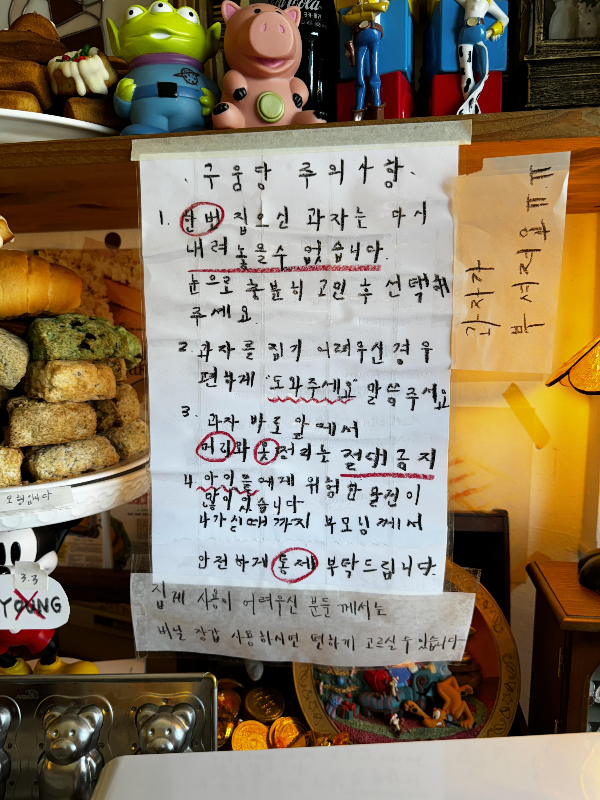 구움당 주의사항.
1. 한번 집으신 과자는 다시
내려 놓을수 없습니다.
눈으로 충분히 고민 후 선택해
주세요
2. 과자를 집기 어려우신 경우
편하게 "도와주세요" 말씀 주세요
3.
과자 바로 앞에서
머리와 옷 정리는 절대 금지
4. 아이들에게 위험한 물건이
많이 있습니다
나가실때 까지 부모님께서
안전하게 통제 부탁드립니다.
집게 사용이 어려우신 분들 께서는
비닐 장갑 사용하시면 편하게 고르실 수 있습니다
과자가
부셔져요 ㅠㅠ
모형입니다
3.3
YOUNG
Coca-Cola
코카·콜라